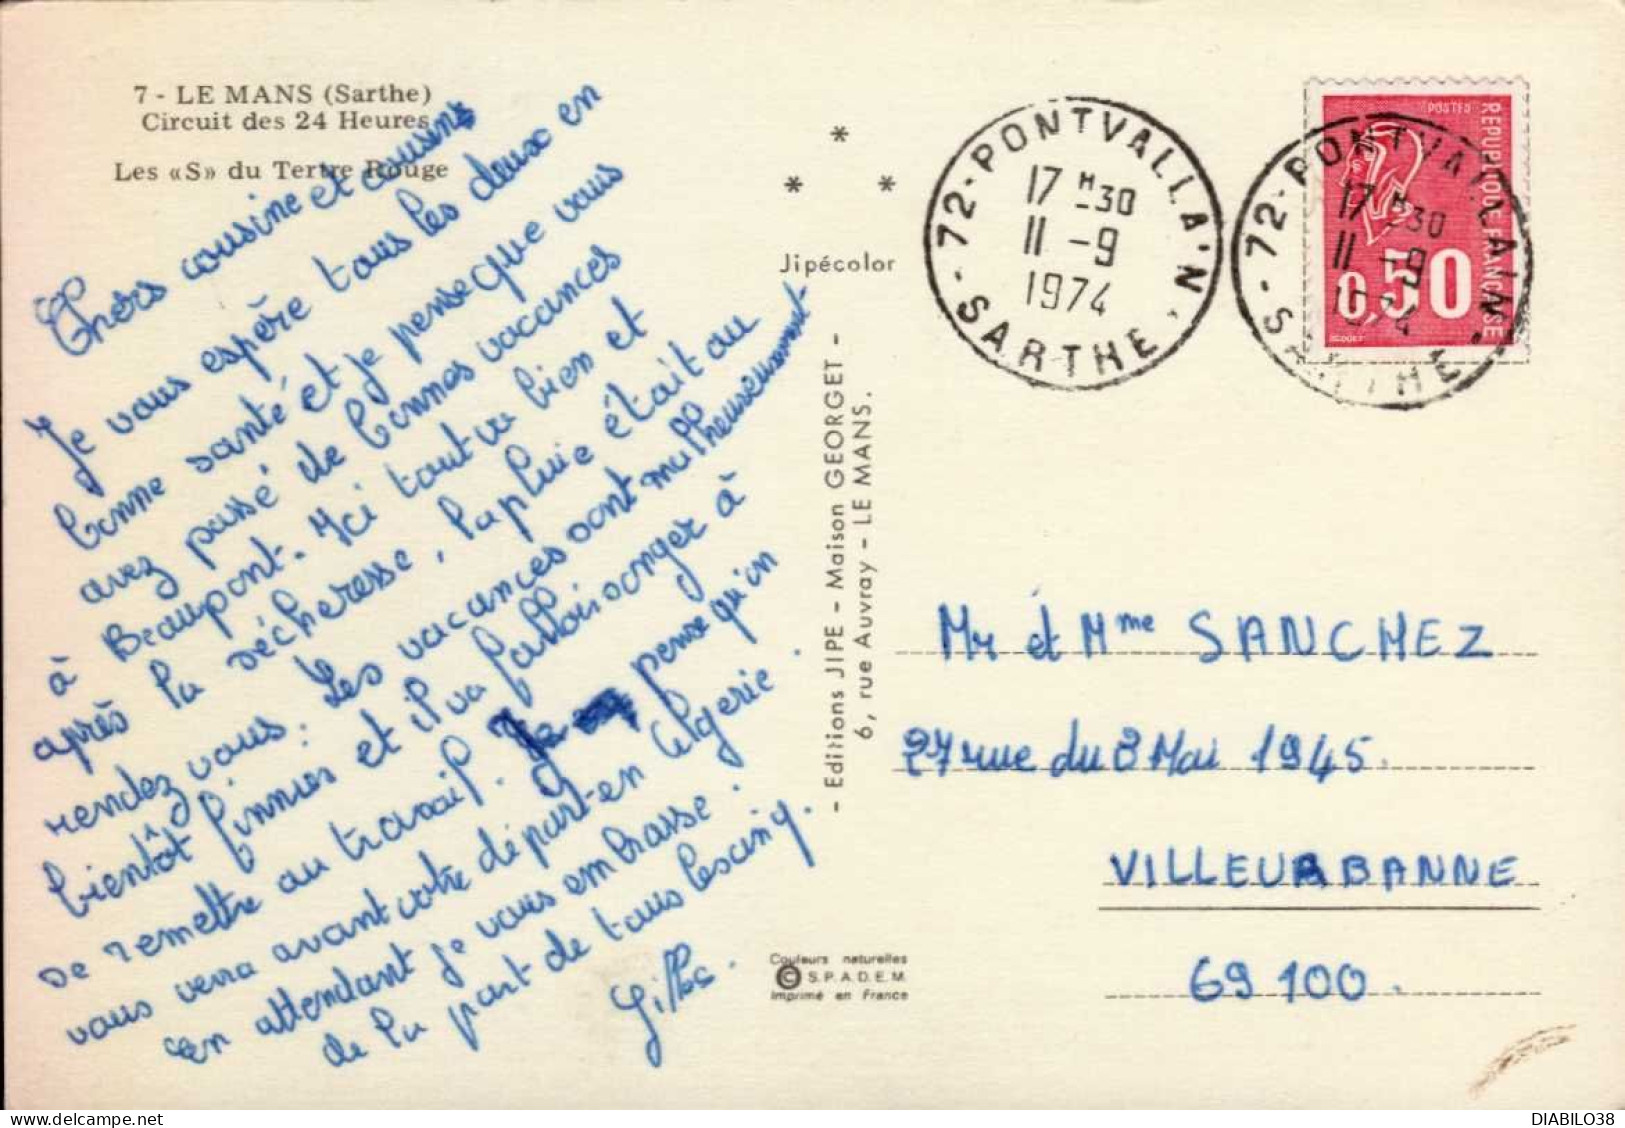 7 - LE MANS (Sarthe)
Circuit des 24 Heures
Les «S» du Tertre Rouge
Chers cousine et cousins
Je vous espère tous les deux en
bonne santé et je pense que vous
avez passé de bonnes vacances
à Beaupont. Ici tout va bien et
après la sécheresse, la pluie était au
rendez vous. Les vacances sont malheureusement
bientôt finnies et il va falloir songer à
se remettre au travail. Je pense qu'on
vous verra avant votre départ en Algerie.
en attendant je vous embrasse.
de la part de tous les cinq.
Gilles.
* * *
Jipécolor
- Editions JIPE - Maison GEORGET -
6, rue Auvray - LE MANS.
Couleurs naturelles
© S.P.A.D.E.M.
Imprimé en France
72-PONTVALLAIN
17 H-30
11 -9
1974
SARTHE
72-PONTVALLAIN
17 H30
11 -9
1974
SARTHE
POSTES
REPUBLIQUE FRANÇAISE
0,50
BEQUET
Mr et Mme SANCHEZ
27 rue du 8 Mai 1945.
VILLEURBANNE
69 100.
DIABILO38